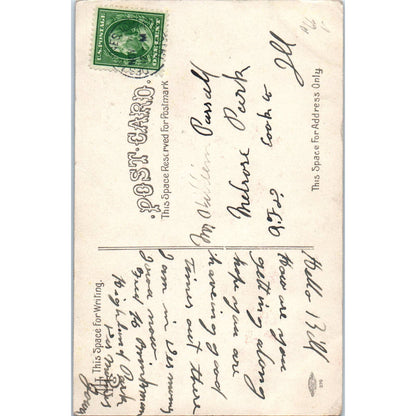 U.S. POSTAGE
POST CARD
This Space Reserved for Postmark
This Space For Address Only
This Space For Writing.
Mr William Parrall
Melrose Park
Cook Co
Ill
Hello Bill
How are you
getting along
hope you are
having good
Times out there
I am in Des Moines
Iowa now
Highland Park
Des Moines
Iowa